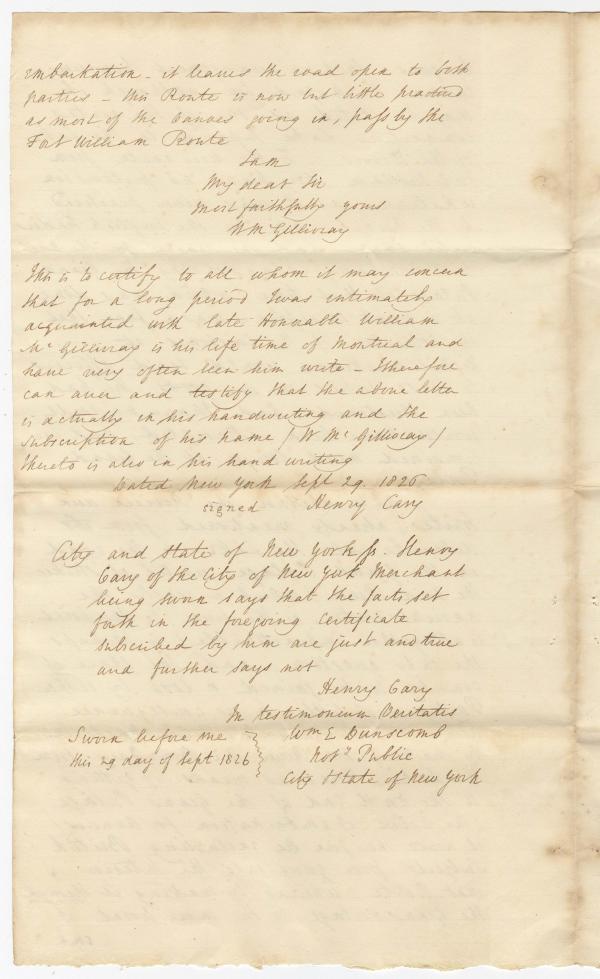 embarkation - it leaves the road open to both
parties - this Route is now but little practised
as most of the Canoes going in, pass by the
Fort William Route
I am
My dear Sir
Most faithfully yours
W McGillivray
This is to certify to all whom it may concern
that for a long period I was intimately
acquainted with late Honorable William
McGillivray is his life time of Montreal and
have very often seen him write - I therefore
can aver and testify that the above letter
is actually in his handwriting and the
subscription of his name (W McGillivray)
thereto is also in his hand writing
Dated New York Sept 29. 1826
signed Henry Cary
City and State of New York ss. Henry
Cary of the City of New York Merchant
being sworn says that the facts set
forth in the foregoing Certificate
subscribed by him are just and true
and further says not
Henry Cary
In testimonium Veritatis
Sworn before me Wm E Dunscomb
this 29 day of Sept 1826 Noty Public
City & State of New York